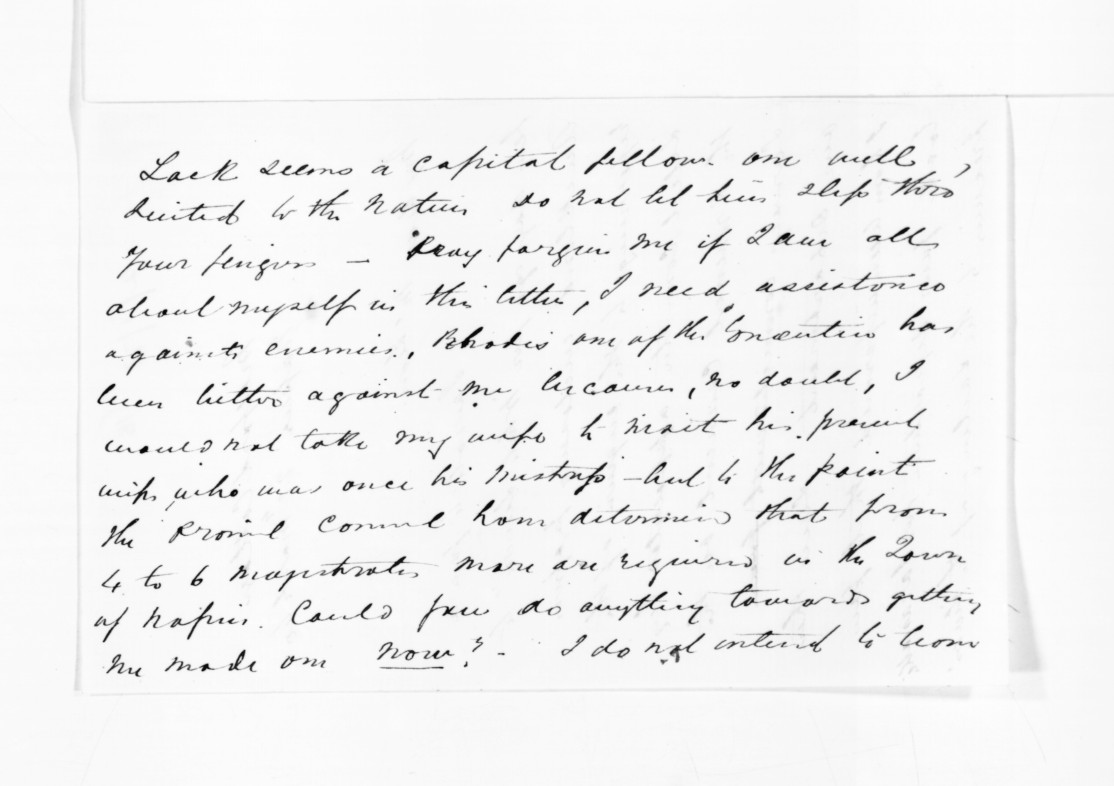 Lock seems a capital fellow one well
suited to the Natives do not let him slip thro'
your fingers — Pray forgive me if I am all
about myself in this letter, I need assistance
against enemies, Rhodes one of the Executive has
been bitter against me because, no doubt, I
would not take my wife to visit his present
wife who was once his Mistress — but to the point
the Provinl Council have determined that from
4 to 6 Magistrates more are required in the Town
of Napier. Could you do anything towards getting
me made one now? - I do not intend to leave